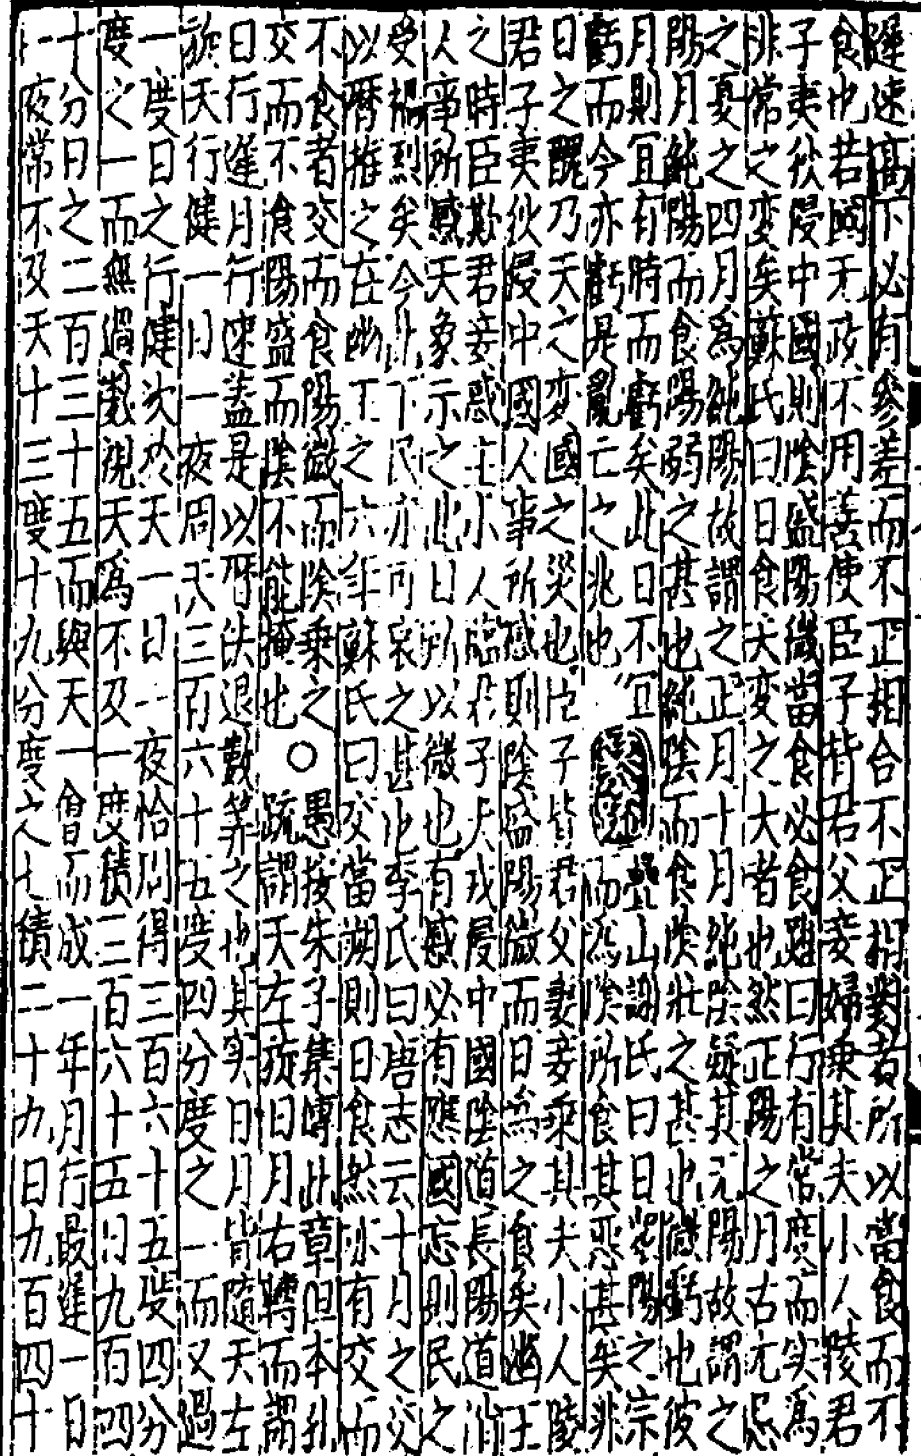 遲速高下必有參差而不正相合不正相對者所以當食而不
食也若國无政不用善使臣子背君父妾婦乗其夫小人陵君
子夷狄侵中國則陰盛陽微當食必食雖曰行有常度而实爲
非常之变矣蘇氏曰日食天变之大者也然正陽之月古尤忌
之夏之四月爲純陽故謂之正月十月純陰疑其无陽故謂之
陽月純陽而食陽弱之甚也純陰而食陰壯之甚也微虧也彼
月則宜有時而虧矣此日不宜
虧而今亦虧是亂亡之兆也
疊山謝氏曰日衆陽之宗
而為陰所食其惡甚矣非
日之醜乃天之变國之災也臣子背君父妻妾乗其夫小人陵
君子夷狄侵中國人事所感則陰盛陽微而日為之食矣幽王
之時臣欺君妾惑主小人君子犬戎侵中國陰道長陽道消
人事所感天象示之此日所以微也有感必有應國忘則民之
受禍烈矣今此下民亦可哀之甚也李氏曰唐志云十月之交
以曆推之在幽王之六年蘇氏曰交當朔則日食然亦有交而
不食者交而食陽微而陰乗之
交而不食陽盛而陰不能掩也
○愚按朱子集傳此章但本孔
疏謂天左旋日月右轉而謂
日行遲月行速盖是以曆法退數筭之也其实日月皆隨天左
旋天行健一日一夜周天三百六十五度四分度之一而又過
一度日之行健次於天一日一夜恰周得三百六十五度四分
度之一而無過數視天爲不及一度積三百六十五日九百四
十分日之二百三十五而與天一會而成一年月行最遲一日
一夜常不及天十三度十九分度之七積二十九日九百四十